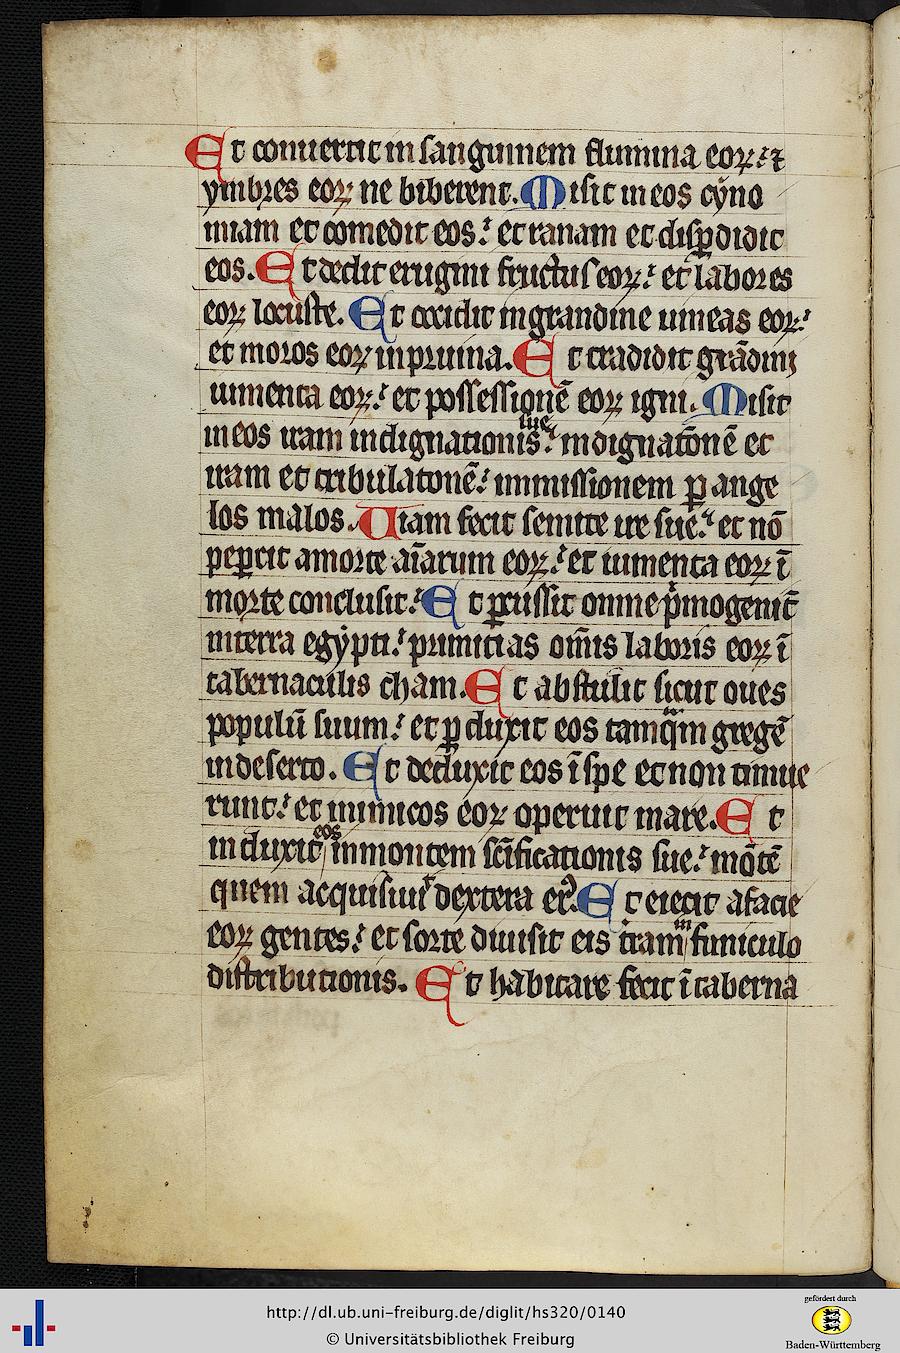 Et conuertit in sanguinem flumina eoꝝ: ⁊
ymbres eoꝝ ne biberent. Misit in eos cyno
miam et comedit eos: et ranam et disꝑdidit
eos. Et dedit erugini fructus eoꝝ: et labores
eoꝝ locuste. Et occidit in grandine uineas eoꝝ:
et moros eoꝝ in pruina. Et tradidit grādini
iumenta eoꝝ: et possessionē eoꝝ igni. Misit
sue
in eos iram indignationis: indignatōnē et
iram et tribulatōnē: immissionem ꝑ ange
los malos. Uiam fecit semite ire sue: et nō
peꝑcit a morte aīarum eoꝝ: et iumenta eoꝝ ī
morte conclusit: Et ꝑcussit omne pͥmogenitū
in terra egypti: primitias om̄is laboris eoꝝ ī
tabernaculis cham. Et abstulit sicut oues
populū suum: et ꝑduxit eos tamqͣm gregē
in deserto. Et deduxit eos ī spe et non timue
runt: et inimicos eoꝝ operuit mare. Et
eos
induxit in montem scīficationis sue: mōtē
quem acquisiuit dextera eiꝰ. Et eiecit a facie
eoꝝ gentes: et sorte diuisit eis tram in funiculo
distributionis. Et habitare fecit ī taberna
http://dl.ub.uni-freiburg.de/diglit/hs320/0140
© Universitätsbibliothek Freiburg
gefördert durch
Baden-Württemberg